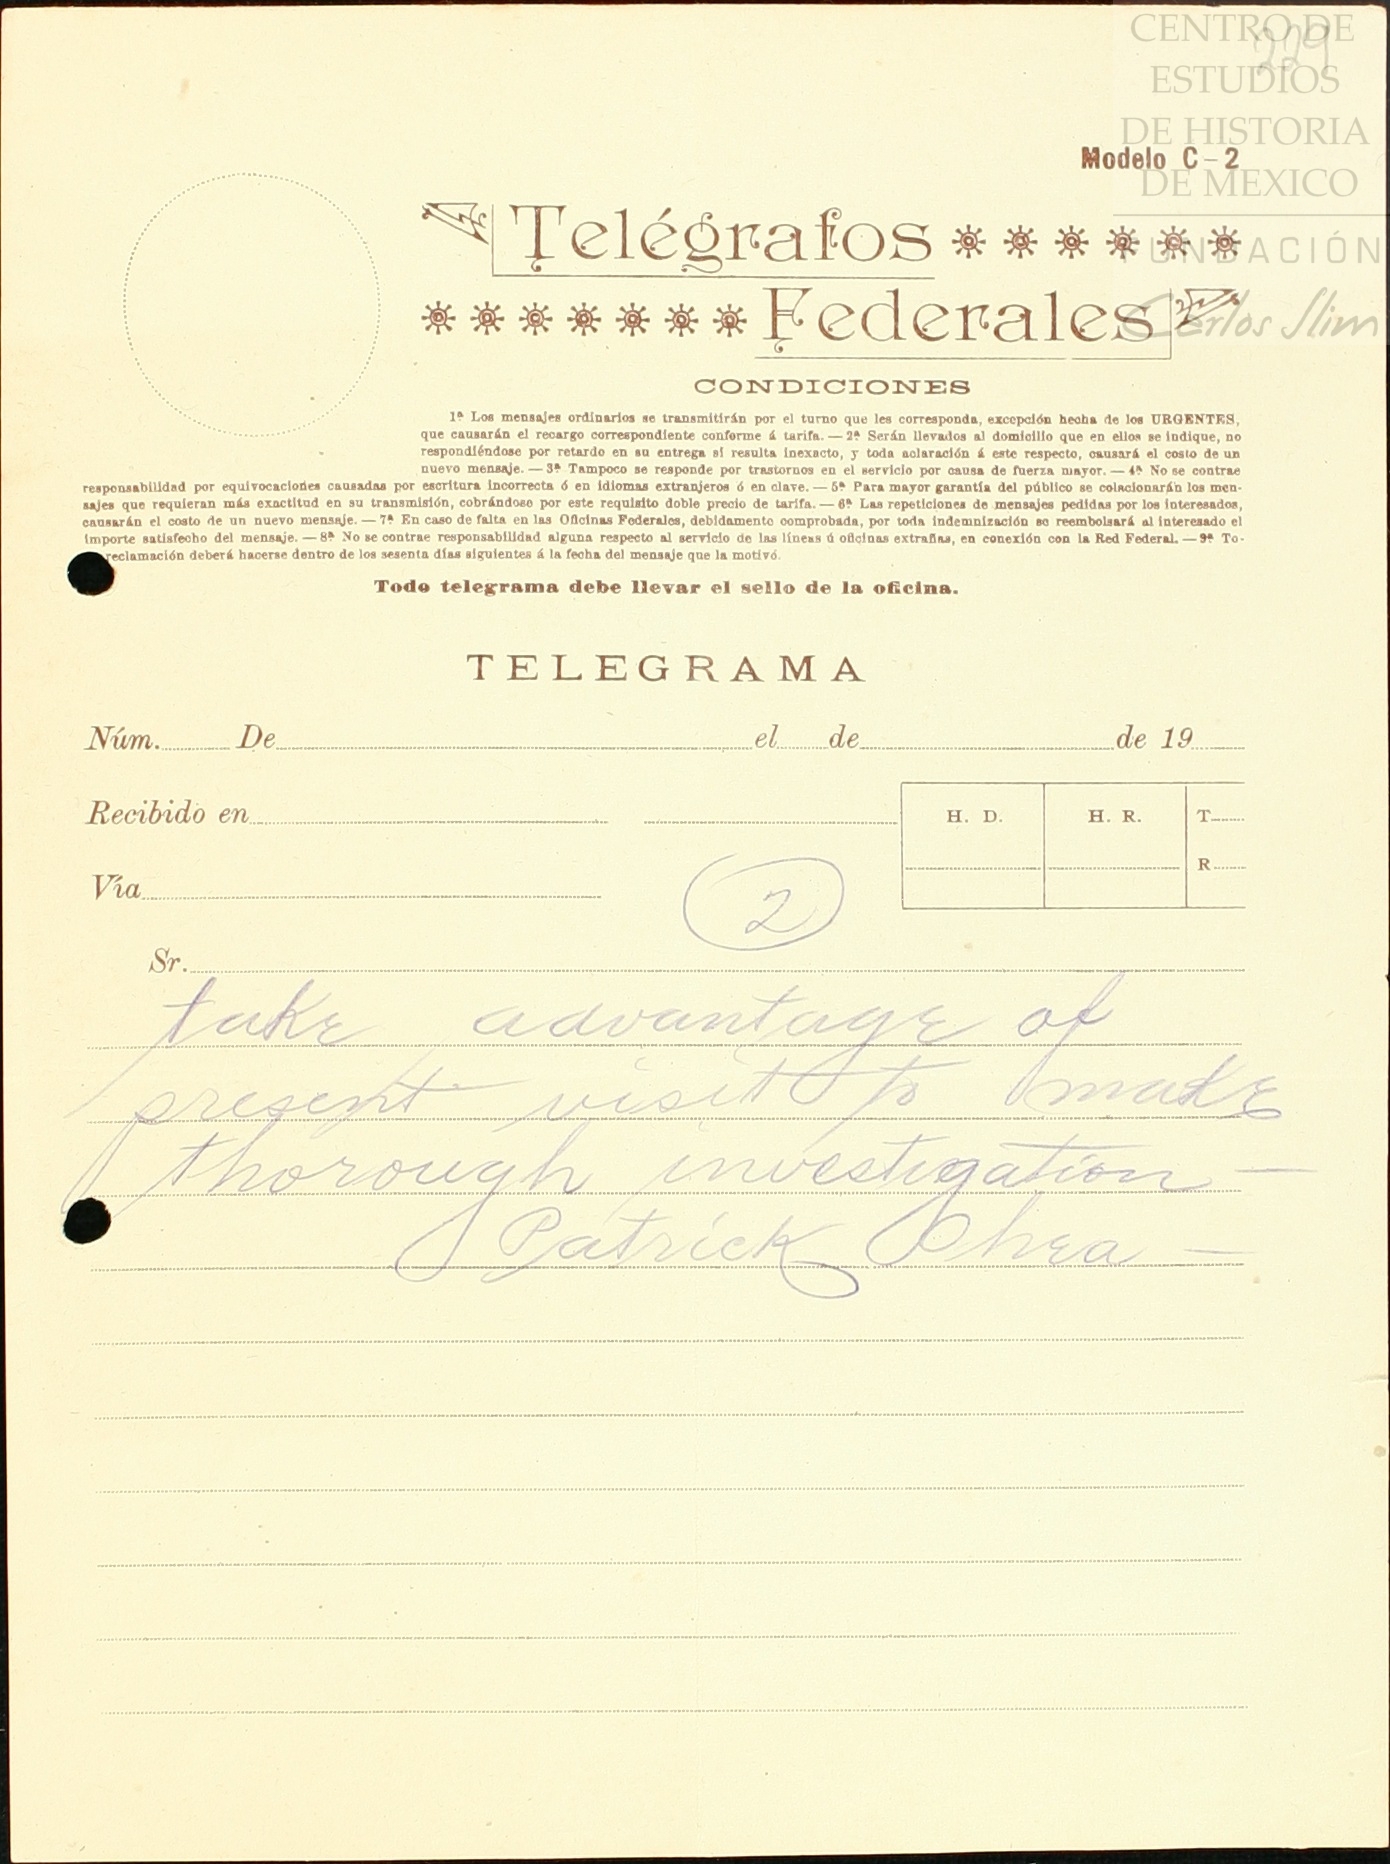 229
CENTRO DE
ESTUDIOS
DE HISTORIA
DE MEXICO
FUNDACIÓN
Carlos Slim
Modelo C-2
Telégrafos
Federales
CONDICIONES
1ª Los mensajes ordinarios se transmitirán por el turno que les corresponda, excepción hecha de los URGENTES,
que causarán el recargo correspondiente conforme á tarifa. — 2ª Serán llevados al domicilio que en ellos se indique, no
respondiéndose por retardo en su entrega si resulta inexacto, y toda aclaración á este respecto, causará el costo de un
nuevo mensaje. — 3ª Tampoco se responde por trastornos en el servicio por causa de fuerza mayor. — 4ª No se contrae
responsabilidad por equivocaciones causadas por escritura incorrecta ó en idiomas extranjeros ó en clave. — 5ª Para mayor garantía del público se colacionarán los men-
sajes que requieran más exactitud en su transmisión, cobrándose por este requisito doble precio de tarifa. — 6ª Las repeticiones de mensajes pedidas por los interesados,
causarán el costo de un nuevo mensaje. — 7ª En caso de falta en las Oficinas Federales, debidamente comprobada, por toda indemnización se reembolsará al interesado el
importe satisfecho del mensaje. — 8ª No se contrae responsabilidad alguna respecto al servicio de las líneas ú oficinas extrañas, en conexión con la Red Federal. — 9ª To-
reclamación deberá hacerse dentro de los sesenta días siguientes á la fecha del mensaje que la motivó.
Todo telegrama debe llevar el sello de la oficina.
TELEGRAMA
Núm. De el de de 19
Recibido en H. D. H. R. T
R
Vía 2
Sr.
take advantage of
present visit to make
thorough investigation —
Patrick Shea —